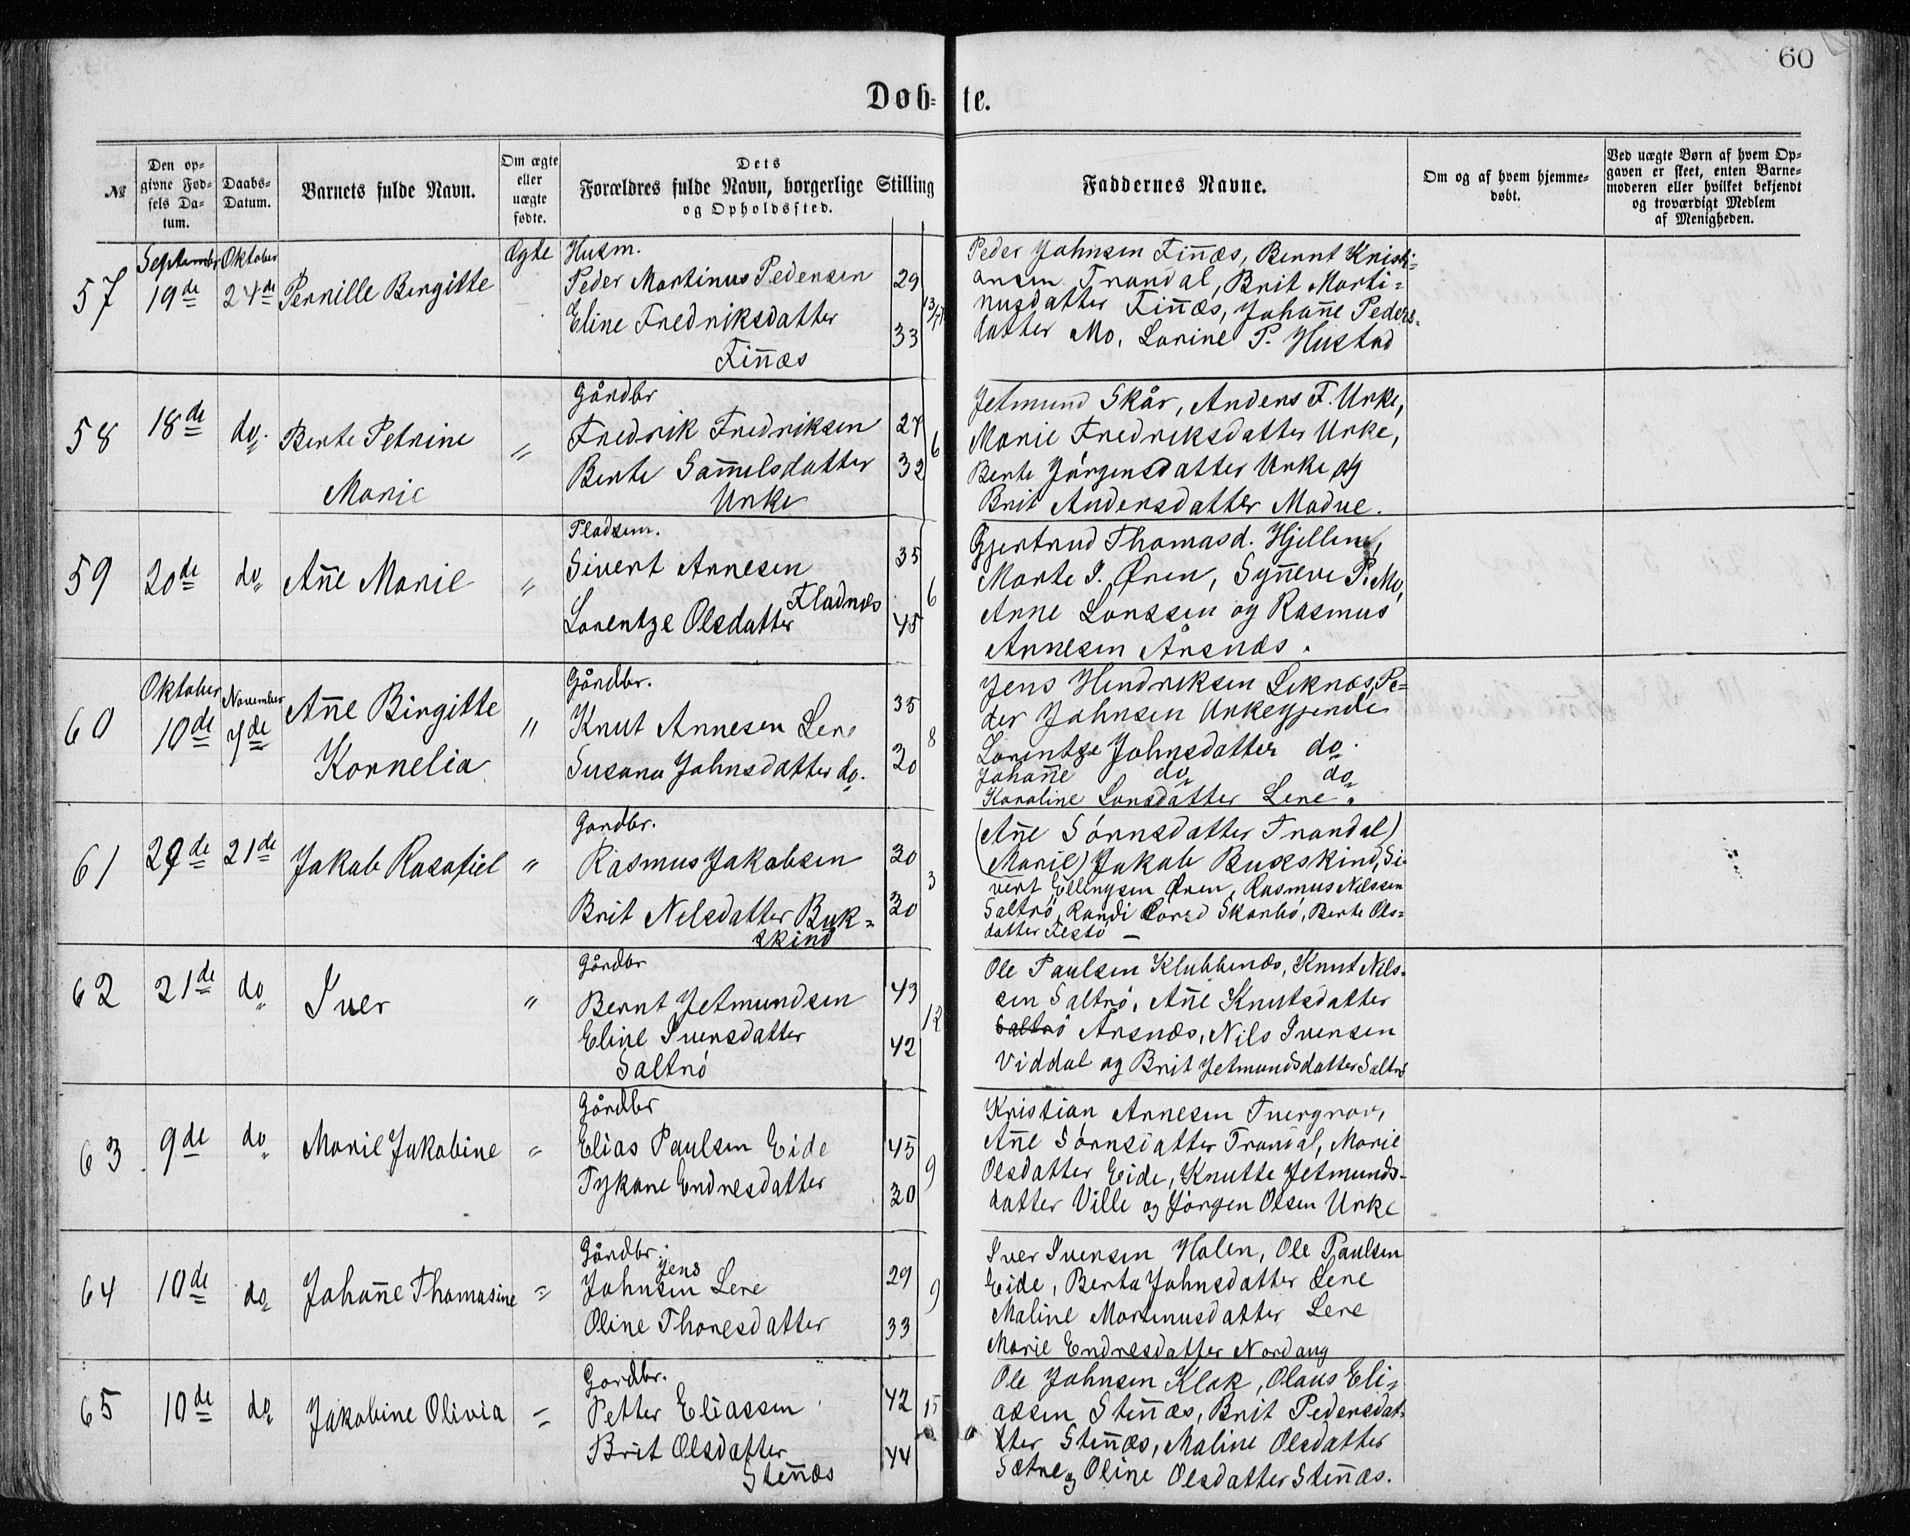 60
Døb- te.
№
Den opgivne Fødsels Datum.
Daabs-Datum.
Barnets fulde Navn.
Om ægte eller uægte fødte.
Dets Forældres fulde Navn, borgerlige Stilling og Opholdssted.
Faddernes Navne.
Om og af hvem hjemmedøbt.
Ved uægte Børn af hvem Opgaven er skeet, enten Barnemoderen eller hvilket bekjendt og troværdigt Medlem af Menigheden.
57
September 19de
Oktober 24de
Pernille Bergitte
Ægte
Husm.
Peder Martinus Pedersen 29
Eline Fredriksdatter 33
Fin̄æs
Peder Johnsen Fin̄æs, Bernt Kristi=
ansen Trandal, Brit Marti=
nusdatter Fin̄æs, Johan̄e Peders=
datter Mo, Lorine P. Hustad
58
18de
do.
Berte Petrine
Marie
"
Gårdbr
Fredrik Fredriksen 27
Berte Sam̄elsdatter 32
Urke
6
Jetmund Skår, Anders F. Urke,
Marie Fredriksdatter Urke,
Berte Jørgensdatter Urke og
Brit Andersdatter Madve.
59
20de
do
An̄e Marie
"
Pladsm.
Sivert Arnesen 35
Fladnæs
Lorentze Olsdatter 45
6
Gjertrud Thomasd. Hjellen,
Marte I. Øren, Syn̄eve P. Mo,
Arne Larssen og Rasmus
Arnesen Årsnæs.
60
Oktober 10de
November 7de
An̄e Birgitte
Kornelia
"
Gårdbr.
Knut Arnesen Lere 35
Susana Johnsdatter do. 30
8
Jens Hendriksen Leknæs, Pe=
der Johnsen Urkegjende
Lorentze Johnsdatter do.
Johan̄e do do
Karoline Larsdatter Lere.
61
29de
21de
Jakob Rasafiel
"
Gardbr.
Rasmus Jakobsen 30
Brit Nilsdatter Buk= 30
skind
3
(An̄e Sørnsdatter Trandal)
(Marie) Jakob Bukskind, Si-
vert Ellingsen Øren, Rasmus Nilssen
Saltrö, Randi Larsd Skarbö, Berte Ols=
datter Festö —
62
21de
do
Iver
"
Gårdbr
Bernt Jetmundsen 43
Eline Iversdatter 42
Saltrö
12
Ole Paulsen Klubbenæs, Knut Nils-
sen Saltrö, An̄e Knutsdatter
Saltrö Årsnæs, Nils Iversen
Viddal og Brit Jetmundsdatter Saltrö
63
9de
do
Marie Jakobine
"
Gårdbr
Elias Paulsen Eide 45
Tykane Endresdatter 30
9
Kristian Arnesen Tvergrov,
An̄e Sørnsdatter Trandal, Marie
Olsdatter Eide, Knutte Jetmunds-
datter Ville og Jörgen Olsen Urke
64
10de
do
Johan̄e Thomasine
"
Gårdbr.
Jens
Johnsen Lere 29
Oline Thoresdatter 33
9
Iver Iversen Holen, Ole Paulsen
Eide, Berta Johnsdatter Lere
Maline Martinusdatter Lere
Marie Endresdatter Nordang
65
10de
do
Jakobine Olivia
"
Gardbr.
Petter Eliassen 42
Brit Olsdatter 44
Sten̄æs
15
Ole Johnsen Klok, Olaus Eli=
assen Sten̄æs, Brit Pedersdat-
ter Sten̄æs, Maline Olsdatter
Sætre og Oline Olsdatter Sten̄æs.